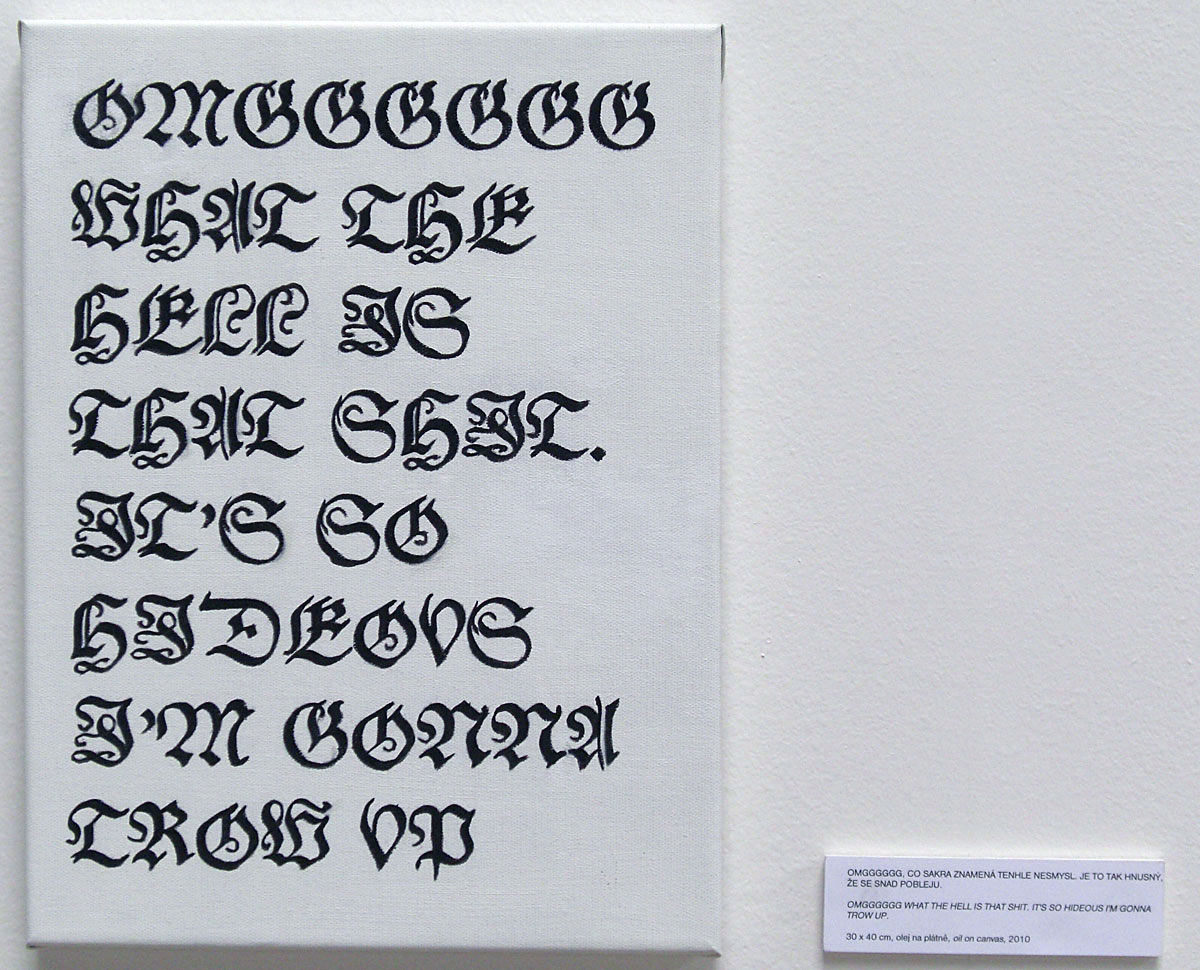 OMGGGGGG
WHAT THE
HELL IS
THAT SHIT.
IT'S SO
HIDEOVS
I'M GONNA
TROW VP
OMGGGGGG, CO SAKRA ZNAMENÁ TENHLE NESMYSL. JE TO TAK HNUSNÝ,
ŽE SE SNAD POBLEJU.
OMGGGGGG WHAT THE HELL IS THAT SHIT. IT'S SO HIDEOUS I'M GONNA
TROW UP.
30 x 40 cm, olej na plátně, oil on canvas, 2010